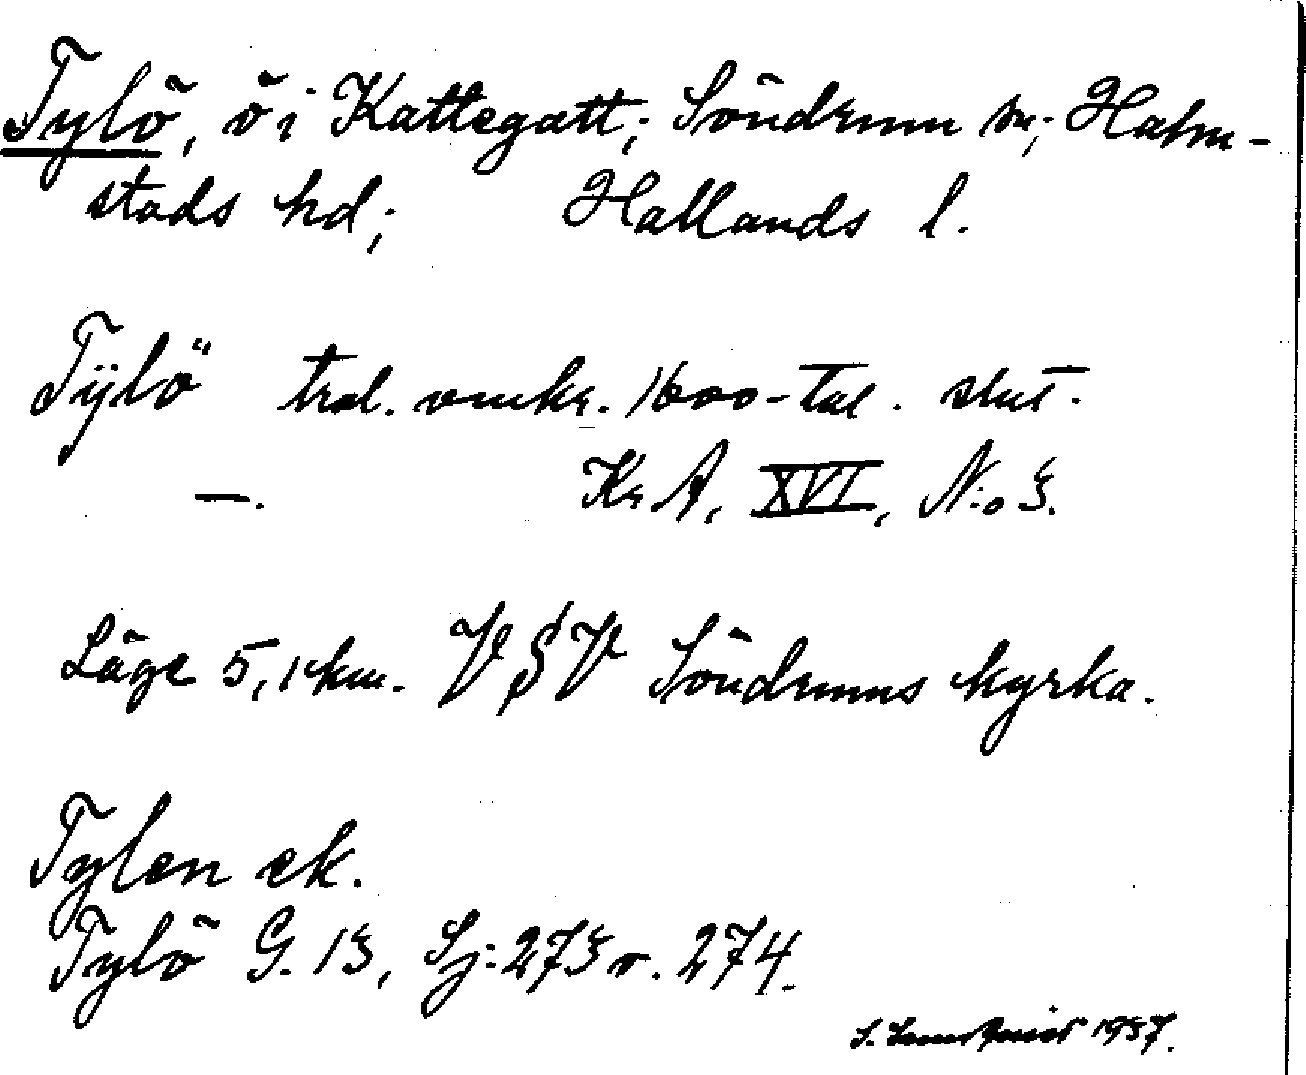 Tylö, ö i Kattegatt; Söndrum sn; Halm-
stads hd; Hallands l.
Tÿlö" tral. omkr. 1600-tal. slut.
—. KrA, XVI, N:o 3.
Läge 5,1 km. VSV Söndrums kyrka.
Tylen ek.
Tylö G. 13, Sj: 273 o. 274.
S. 1937.